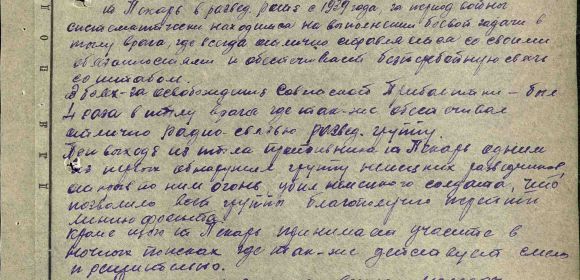 тт Пекарь в развед. роте с 1939 года, за период войны
систематически находился на выполнении боевой задачи в
тылу врага, где всегда отлично справлялся со своими
обязанностями и обеспечивал бесперебойную связь
со штабом.
В боях за освобождение Советской Прибалтики – был
4 раза в тылу врага где так-же обеспечивал
отлично радио-связью развед. группу.
При выходе из тыла противника Пекарь одним
из первых обнаружил группу немецких разведчиков,
открыв по ним огонь, убил немецкого солдата, что
позволило всей группы благополучно перейти
линию фронта.
Кроме Пекарь принимал участие в
ночных поисках где так-же действует смело
и решительно.